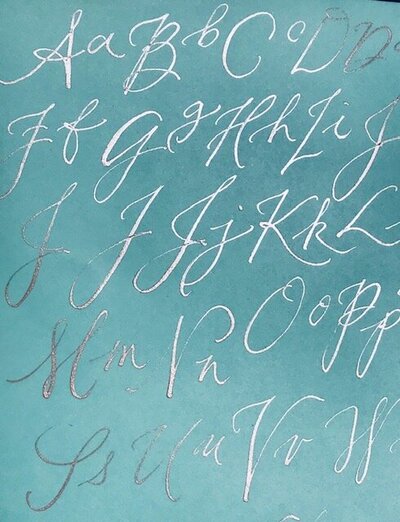 A a B b C c D D
F f G g H h I i J
J J J j K k L
M m N n O o P p
S s U u V v W